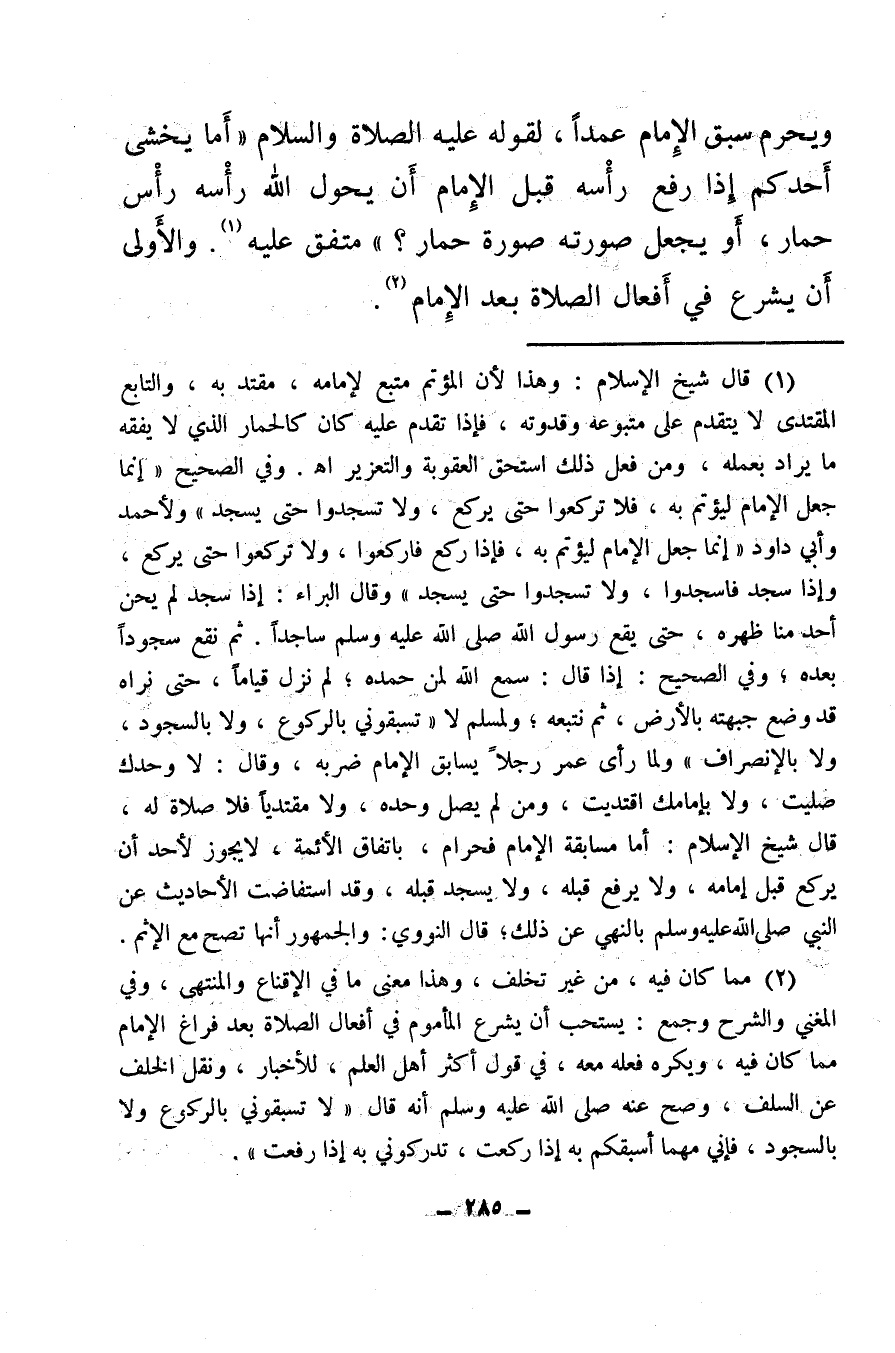 ويحرم سبق الإِمام عمداً ، لقوله عليه الصلاة والسلام « أَما يخشى
أَحدكم إِذا رفع رأْسه قبل الإِمام أَن يحول الله رأْسه رأْس
حمار ، أَو يجعل صورته صورة حمار ؟ » متفق عليه (١) . والأَولى
أَن يشرع في أَفعال الصلاة بعد الإِمام (٢) .
(١) قال شيخ الإسلام : وهذا لأن المؤتم متبع لإمامه ، مقتد به ، والتابع
المقتدى لا يتقدم على متبوعه وقدوته ، فإذا تقدم عليه كان كالحمار الذي لا يفقه
ما يراد بعمله ، ومن فعل ذلك استحق العقوبة والتعزير اه . وفي الصحيح « إنما
جعل الإمام ليؤتم به ، فلا تركعوا حتى يركع ، ولا تسجدوا حتى يسجد » ولأحمد
وأبي داود « إنما جعل الإمام ليؤتم به ، فإذا ركع فاركعوا ، ولا تركعوا حتى يركع ،
وإذا سجد فاسجدوا ، ولا تسجدوا حتى يسجد » وقال البراء : إذا سجد لم يحن
أحد منا ظهره ، حتى يقع رسول الله صلى الله عليه وسلم ساجداً . ثم نقع سجوداً
بعده ؛ وفي الصحيح : إذا قال : سمع الله لمن حمده ؛ لم نزل قياماً ، حتى نراه
قد وضع جبهته بالأرض ، ثم نتبعه ؛ ولمسلم لا « تسبقوني بالركوع ، ولا بالسجود ،
ولا بالإنصراف » ولما رأى عمر رجلاً يسابق الإمام ضربه ، وقال : لا وحدك
صليت ، ولا بإمامك اقتديت ، ومن لم يصل وحده ، ولا مقتدياً فلا صلاة له ،
قال شيخ الإسلام : أما مسابقة الإمام فحرام ، باتفاق الأئمة ، لايجوز لأحد أن
يركع قبل إمامه ، ولا يرفع قبله ، ولا يسجد قبله ، وقد استفاضت الأحاديث عن
النبي صلى الله عليه وسلم بالنهي عن ذلك؛ قال النووي: والجمهور أنها تصح مع الإثم .
(٢) مما كان فيه ، من غير تخلف ، وهذا معنى ما في الإقناع والمنتهى ، وفي
المغني والشرح وجمع : يستحب أن يشرع المأموم في أفعال الصلاة بعد فراغ الإمام
مما كان فيه ، ويكره فعله معه ، في قول أكثر أهل العلم ، للأخبار ، ونقل الخلف
عن السلف ، وصح عنه صلى الله عليه وسلم أنه قال « لا تسبقوني بالركوع ولا
بالسجود ، فإني مهما أسبقكم به إذا ركعت ، تدركوني به إذا رفعت » .
– ٢٨٥ –